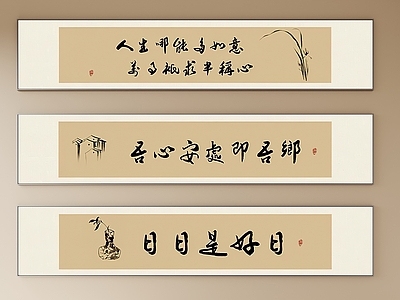 人生哪能多如意
萬事祗求半稱心
吾心安處即吾鄉
日日是好日